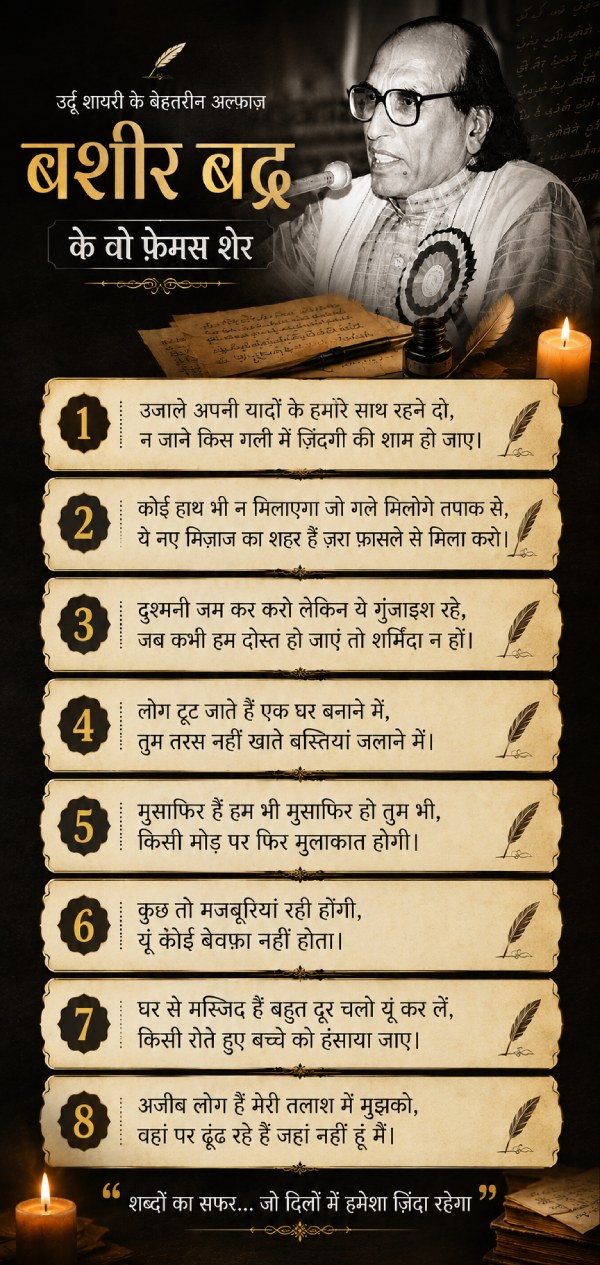 उर्दू शायरी के बेहतरीन अल्फ़ाज़
बशीर बद्र
के वो फ़ेमस शेर
1
उजाले अपनी यादों के हमारे साथ रहने दो,
न जाने किस गली में ज़िंदगी की शाम हो जाए।
2
कोई हाथ भी न मिलाएगा जो गले मिलोगे तपाक से,
ये नए मिज़ाज का शहर हैं ज़रा फ़ासले से मिला करो।
3
दुश्मनी जम कर करो लेकिन ये गुंजाइश रहे,
जब कभी हम दोस्त हो जाएं तो शर्मिंदा न हों।
4
लोग टूट जाते हैं एक घर बनाने में,
तुम तरस नहीं खाते बस्तियां जलाने में।
5
मुसाफिर हैं हम भी मुसाफिर हो तुम भी,
किसी मोड़ पर फिर मुलाकात होगी।
6
कुछ तो मजबूरियां रही होंगी,
यूं कोई बेवफ़ा नहीं होता।
7
घर से मस्जिद हैं बहुत दूर चलो यूं कर लें,
किसी रोते हुए बच्चे को हंसाया जाए।
8
अजीब लोग हैं मेरी तलाश में मुझको,
वहां पर ढूंढ रहे हैं जहां नहीं हूं मैं।
“ शब्दों का सफर... जो दिलों में हमेशा ज़िंदा रहेगा ”